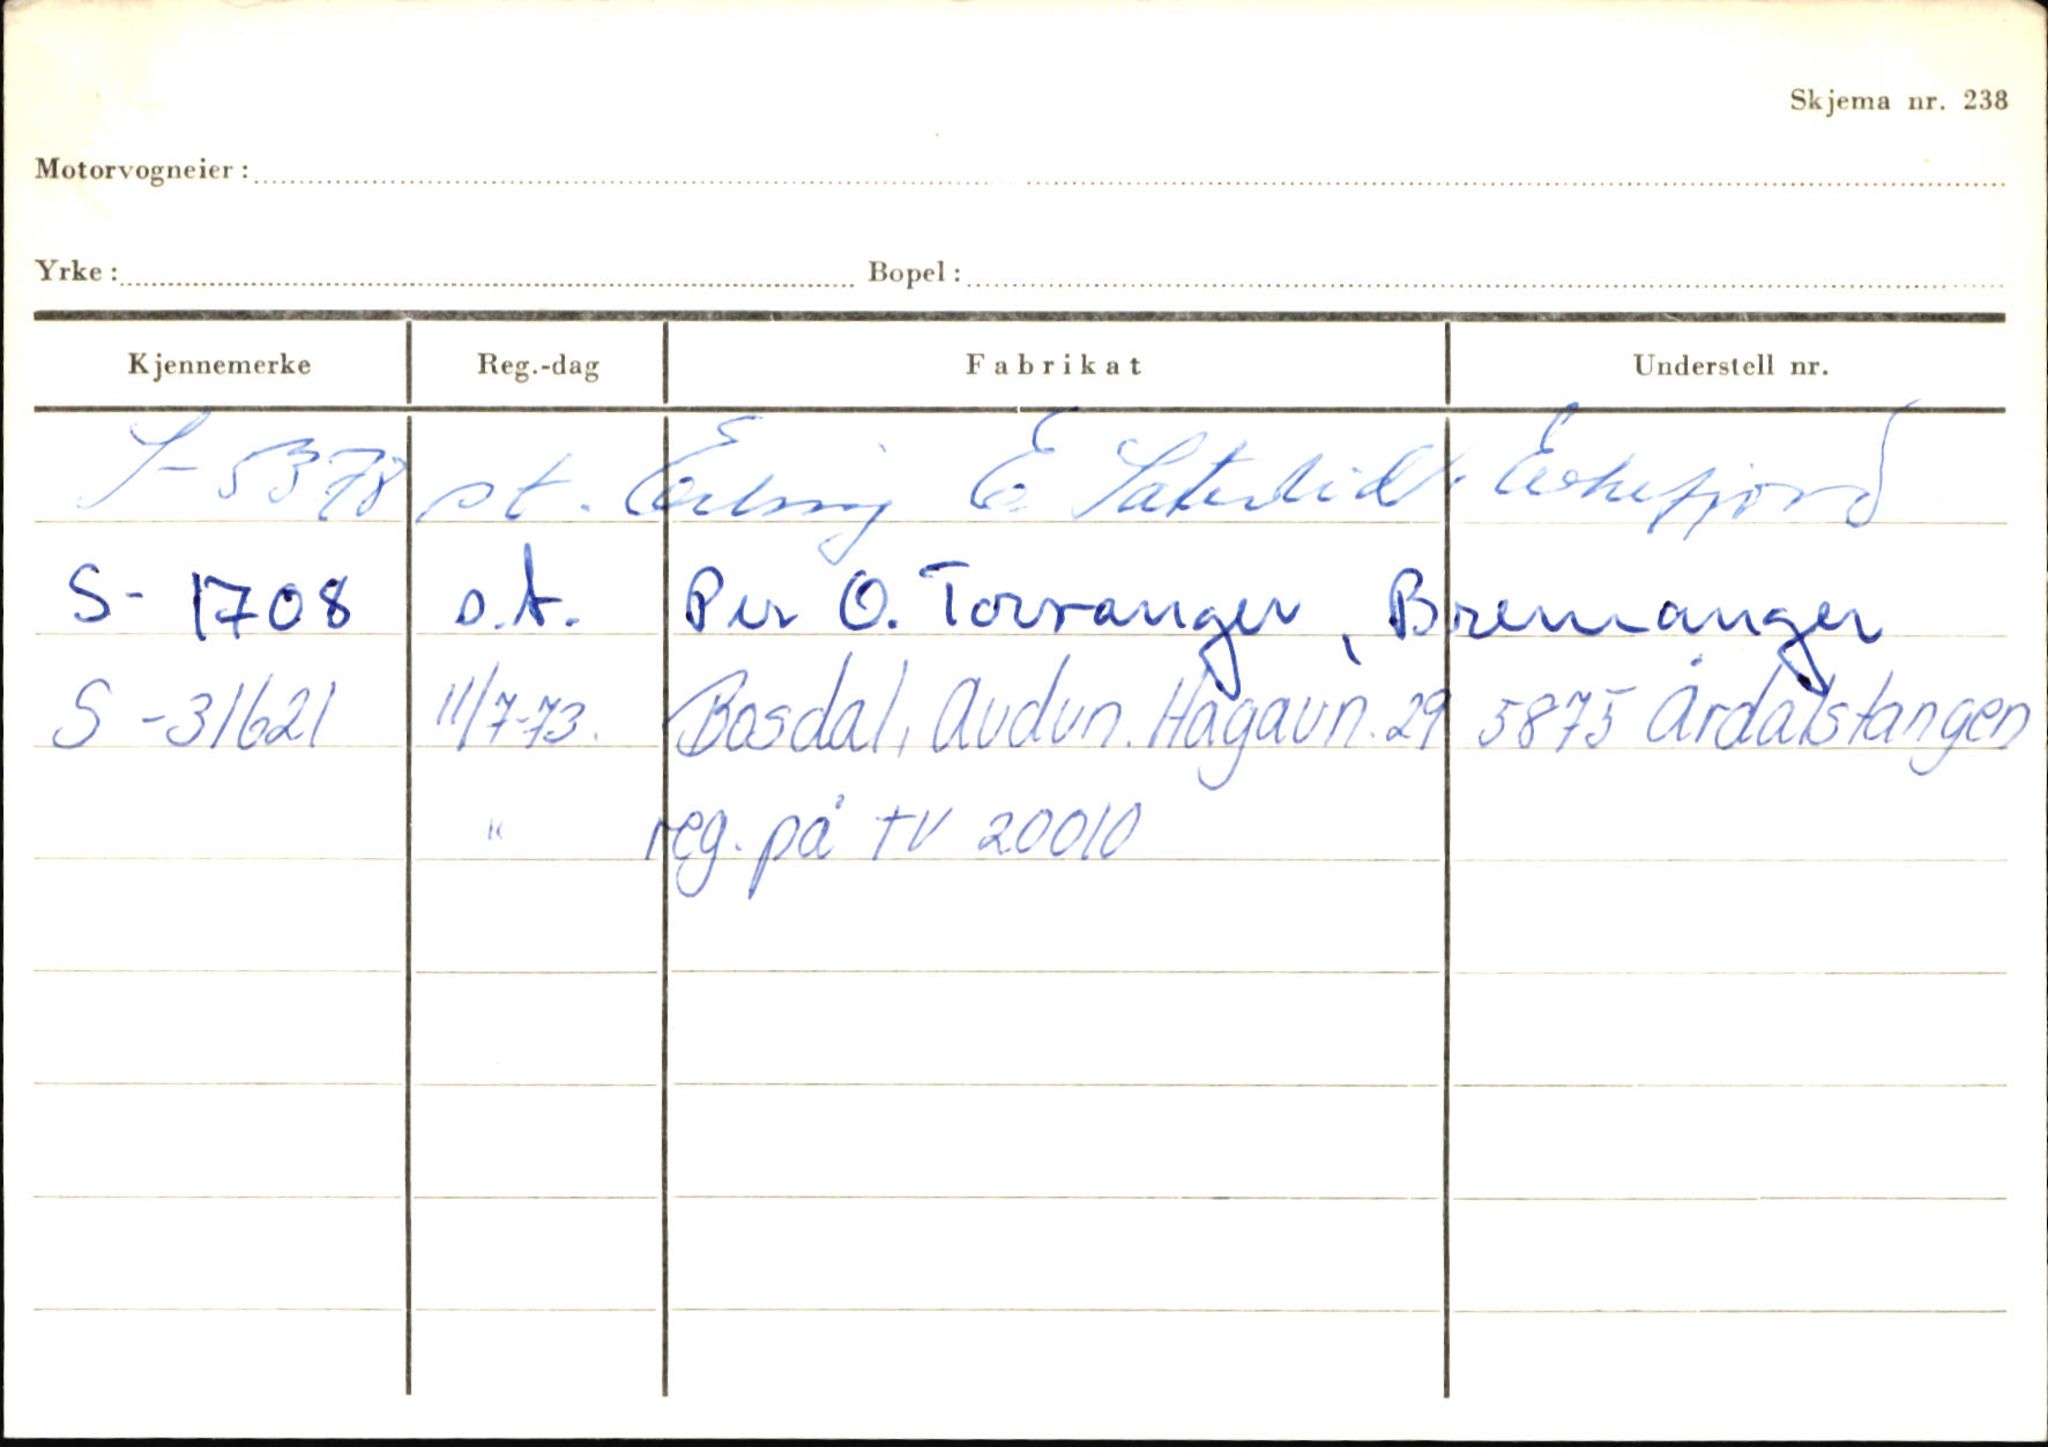 Skjema nr. 238
Motorvogneier:
Yrke: Bopel:
Kjennemerke Reg.-dag Fabrikat Understell nr.
S-5378 st. Erling E. Sæterlid, Eikefjord
S- 1708 s.t. Per O. Torvanger, Bremanger
S-31621 11/7-73. Bosdal, Audun. Hagavn. 29 5875 Årdalstangen
" reg. på TV 20010